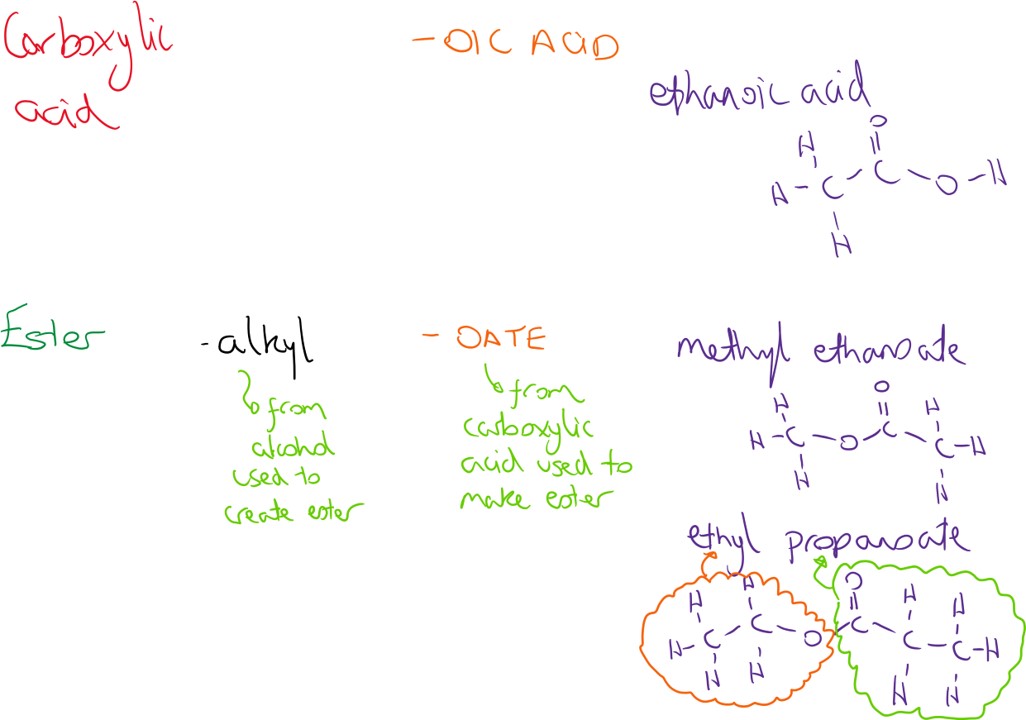 Carboxylic
acid
-OIC ACID
ethanoic acid
O
H
C
H - C
O - H
H
Ester
- alkyl
from
alcohol
used to
create ester
- OATE
from
carboxylic
acid used to
make ester
methyl ethanoate
O
H
H
C
H - C
O
C - H
H
H
ethyl propanoate
H
O
H
H
H
C
C
H - C
O
C
C - H
H
H
H
H